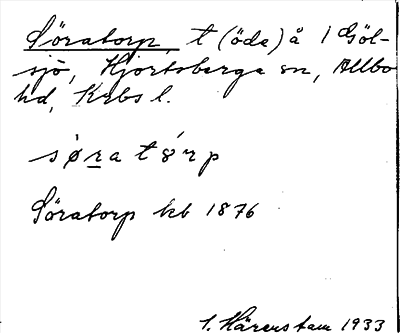 Söratorp, t (öde) å 1 Göl-
sjö, Hjortsberga sn, Allbo
hd, Krbs l.
sø̀ra tórp
Söratorp kb 1876
I. Härenstam 1933